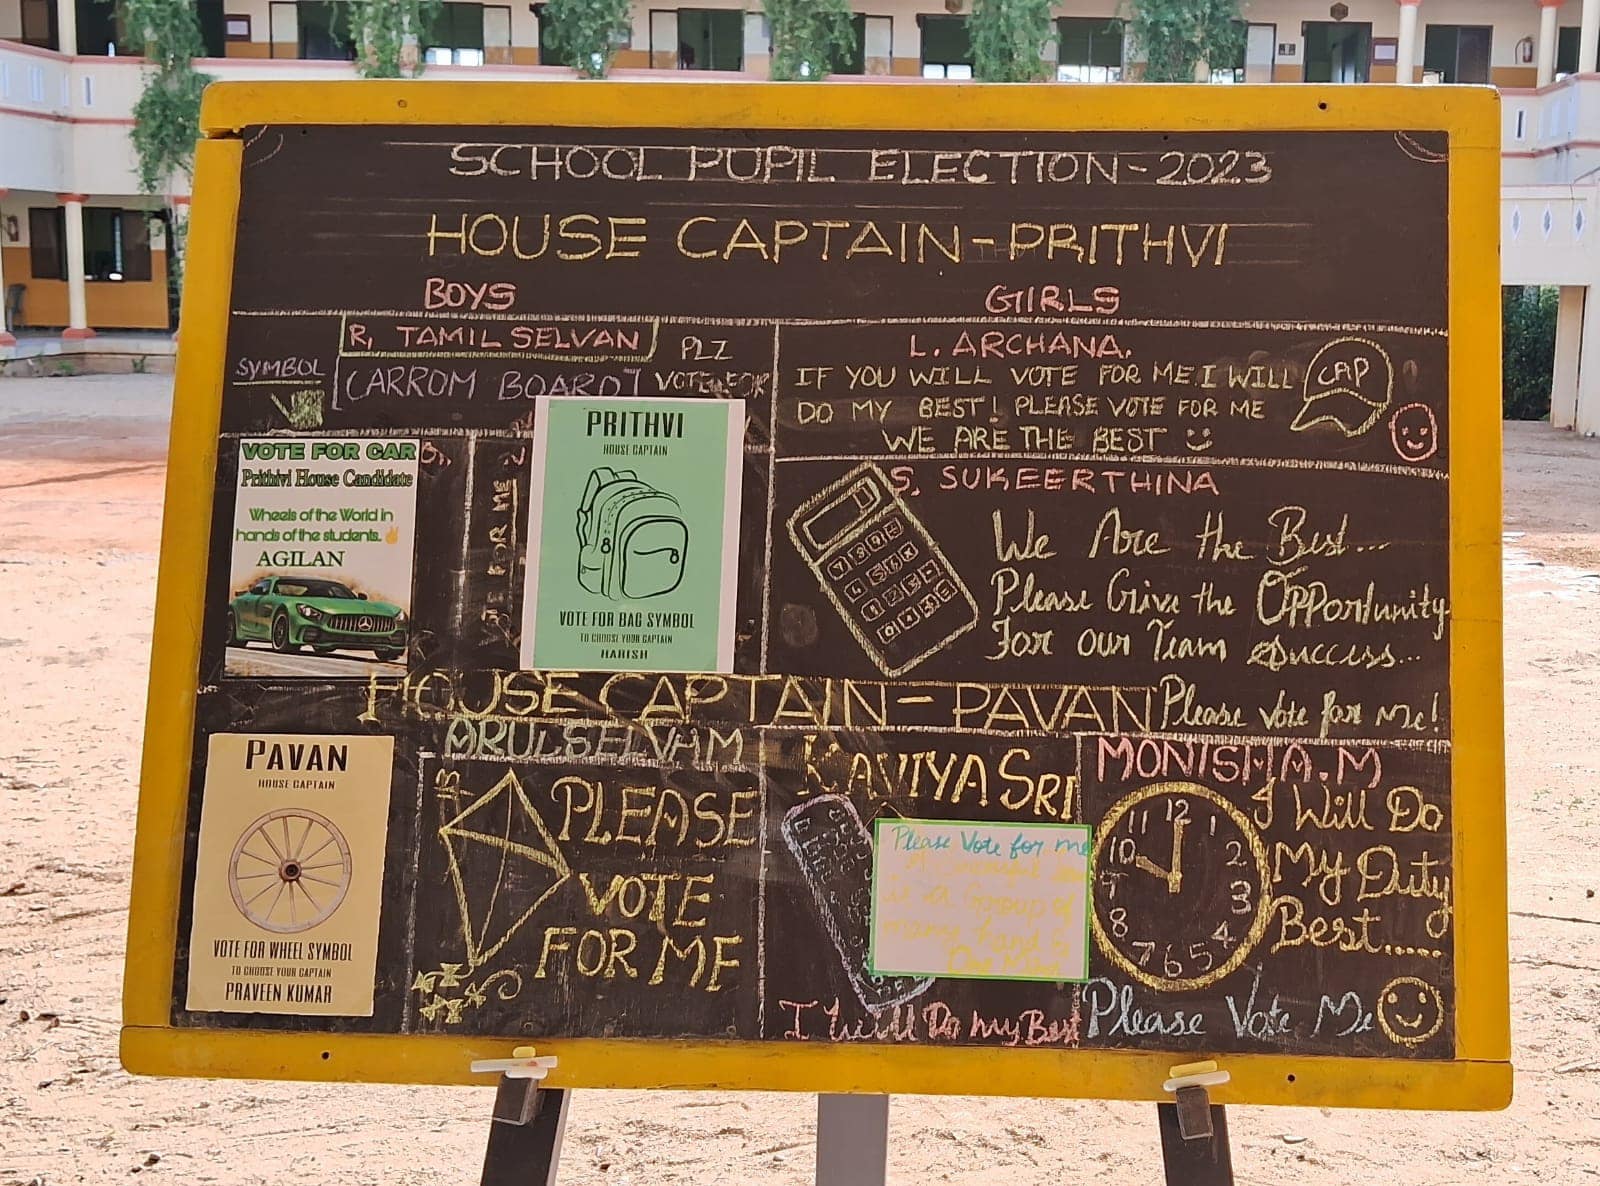 SCHOOL PUPIL ELECTION-2023
HOUSE CAPTAIN-PRITHVI
BOYS
GIRLS
R. TAMIL SELVAN
SYMBOL
CARROM BOARD
PLZ
VOTE FOR
VOTE FOR CAR
Prithivi House Candidate
Wheels of the World in
hands of the students.✌
AGILAN
FOR ME
PRITHVI
HOUSE CAPTAIN
VOTE FOR BAG SYMBOL
TO CHOOSE YOUR CAPTAIN
HARISH
L. ARCHANA.
IF YOU WILL VOTE FOR ME.I WILL
DO MY BEST! PLEASE VOTE FOR ME
WE ARE THE BEST
CAP
S. SUKEERTHINA
We Are the Best...
Please Give the Opportunity
For our Team Success...
Please Vote for Me!
HOUSE CAPTAIN-PAVAN
PAVAN
HOUSE CAPTAIN
VOTE FOR WHEEL SYMBOL
TO CHOOSE YOUR CAPTAIN
PRAVEEN KUMAR
ARULSELVAM
PLEASE
VOTE
FOR ME
KAVIYA SRI
Please Vote for me
is a Group of
many hand &
I Will Do my Best
MONISHA.M
12
11
1
10
2
9
3
8
4
7 6 5
I Will Do
My Duty
Best.....
Please Vote Me